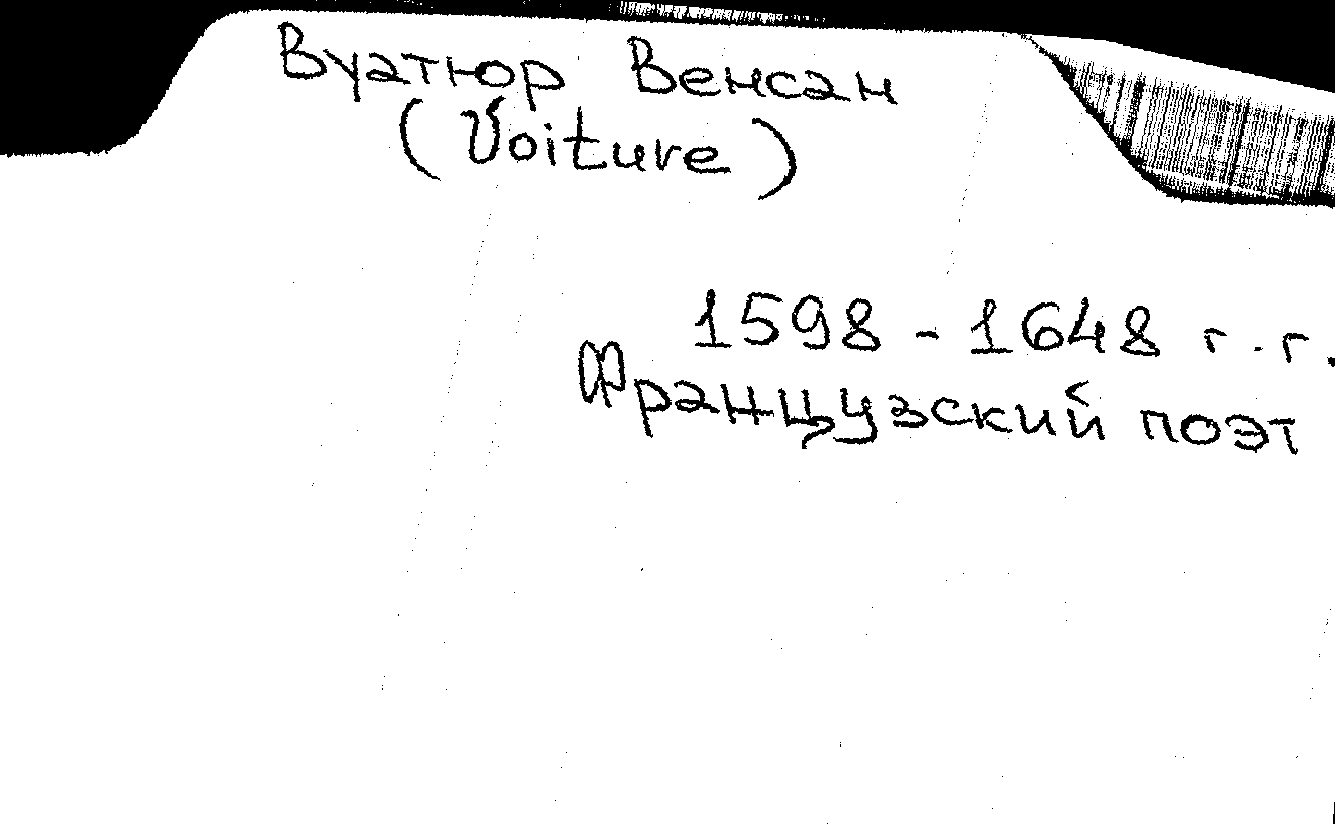 Вуатюр Венсан
(Voiture)
1598 - 1648 г.г.
Французский поэт